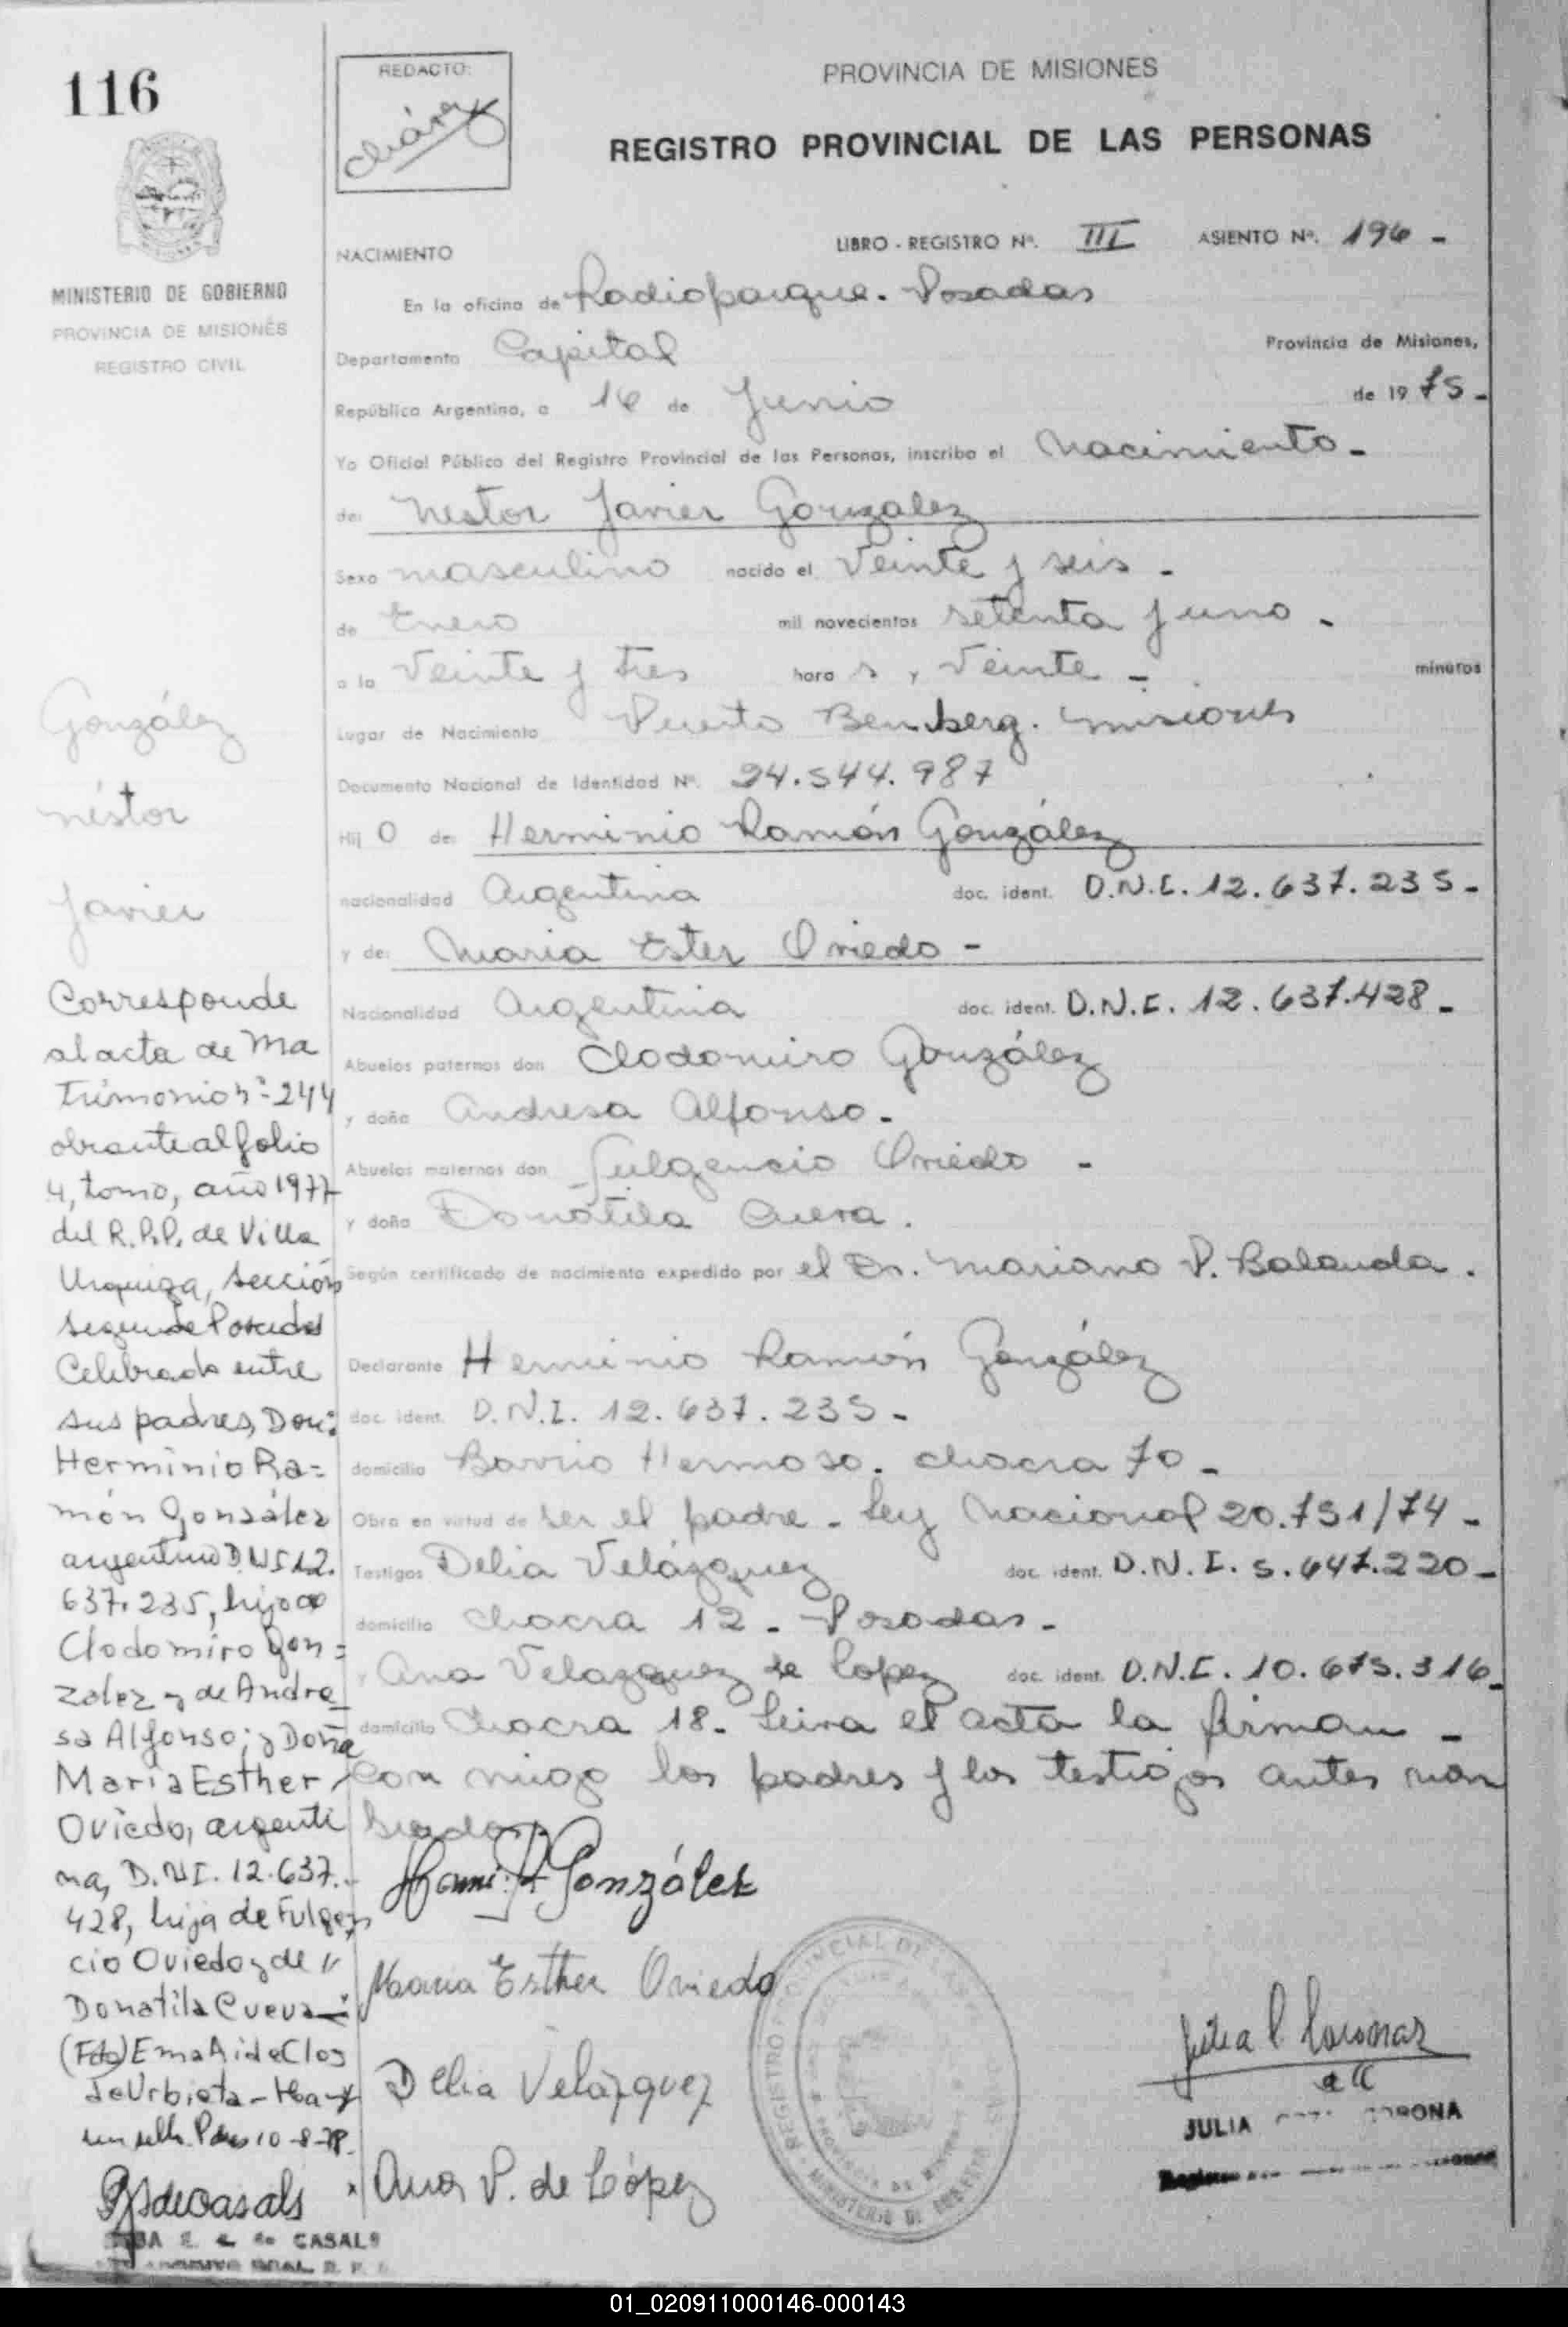 116
REDACTO:
MINISTERIO DE GOBIERNO
PROVINCIA DE MISIONES
REGISTRO CIVIL
PROVINCIA DE MISIONES
REGISTRO PROVINCIAL DE LAS PERSONAS
NACIMIENTO
LIBRO - REGISTRO Nº. III ASIENTO Nº. 196 -
En la oficina de Radioparque. Posadas
Departamento Capital Provincia de Misiones,
República Argentina, a 16 de Junio de 1975 -
Yo Oficial Público del Registro Provincial de las Personas, inscribo el Nacimiento -
de: Nestor Javier Gonzalez
Sexo masculino nacido el Veinte y seis -
de Enero mil novecientos setenta y uno -
a la Veinte y tres hora s y Veinte - minutos
Lugar de Nacimiento Puerto Bemberg. Misiones
Documento Nacional de Identidad Nº. 24.544.987
Hij o de: Herminio Ramón González
nacionalidad Argentina doc. ident. D.N.I. 12.637.235 -
y de: Maria Ester Oviedo -
Nacionalidad Argentina doc. ident. D.N.I. 12.637.428 -
Abuelos paternos don Clodomiro González
y doña Andresa Alfonso -
Abuelos maternos don Fulgencio Oviedo -
y doña Donatila Cueva.
Según certificado de nacimiento expedido por el Dr. Mariano P. Balanda.
Declarante Herminio Ramón González
doc. ident. D.N.I. 12.637.235 -
domicilio Barrio Hermoso. chacra 70 -
Obra en virtud de ser el padre - Ley Nacional 20.751/74 -
Testigos Delia Velázquez doc. ident. D.N.I. 5.647.220 -
domicilio chacra 12 - Posadas -
y Ana Velazquez de Lopez doc. ident. D.N.I. 10.675.316 -
domicilio Chacra 18 - Leida el acta la firman -
Con migo los padres y los testigos antes nom
brados
González
néstor
Javier
Corresponde
al acta de Ma
trimonio nº 244
obrante al folio
4, tomo, año 1977
del R.P.P. de Villa
Urquiza, Sección
Segunda Posadas
Celebrado entre
sus padres, Don:
Herminio Ra=
món González
argentino D.N.I 12.
637.235, hijo de
Clodomiro Gon=
zalez y de Andre
sa Alfonso; y Doña
María Esther
Oviedo, argenti
na, D.N.I. 12.637.
428, hija de Fulgen
cio Oviedo y de
Donatila Cueva
(Fdo) Ema Aide Clos
de Urbieta - Hay
un sello. Pdas 10-8-78.
CASALS
González
Maria Esther Oviedo
Delia Velázquez
Ana V. de López
REGISTRO PROVINCIAL DE LAS PERSONAS
PROVINCIA DE MISIONES
MINISTERIO DE GOBIERNO
JULIA CORONA
01_020911000146-000143